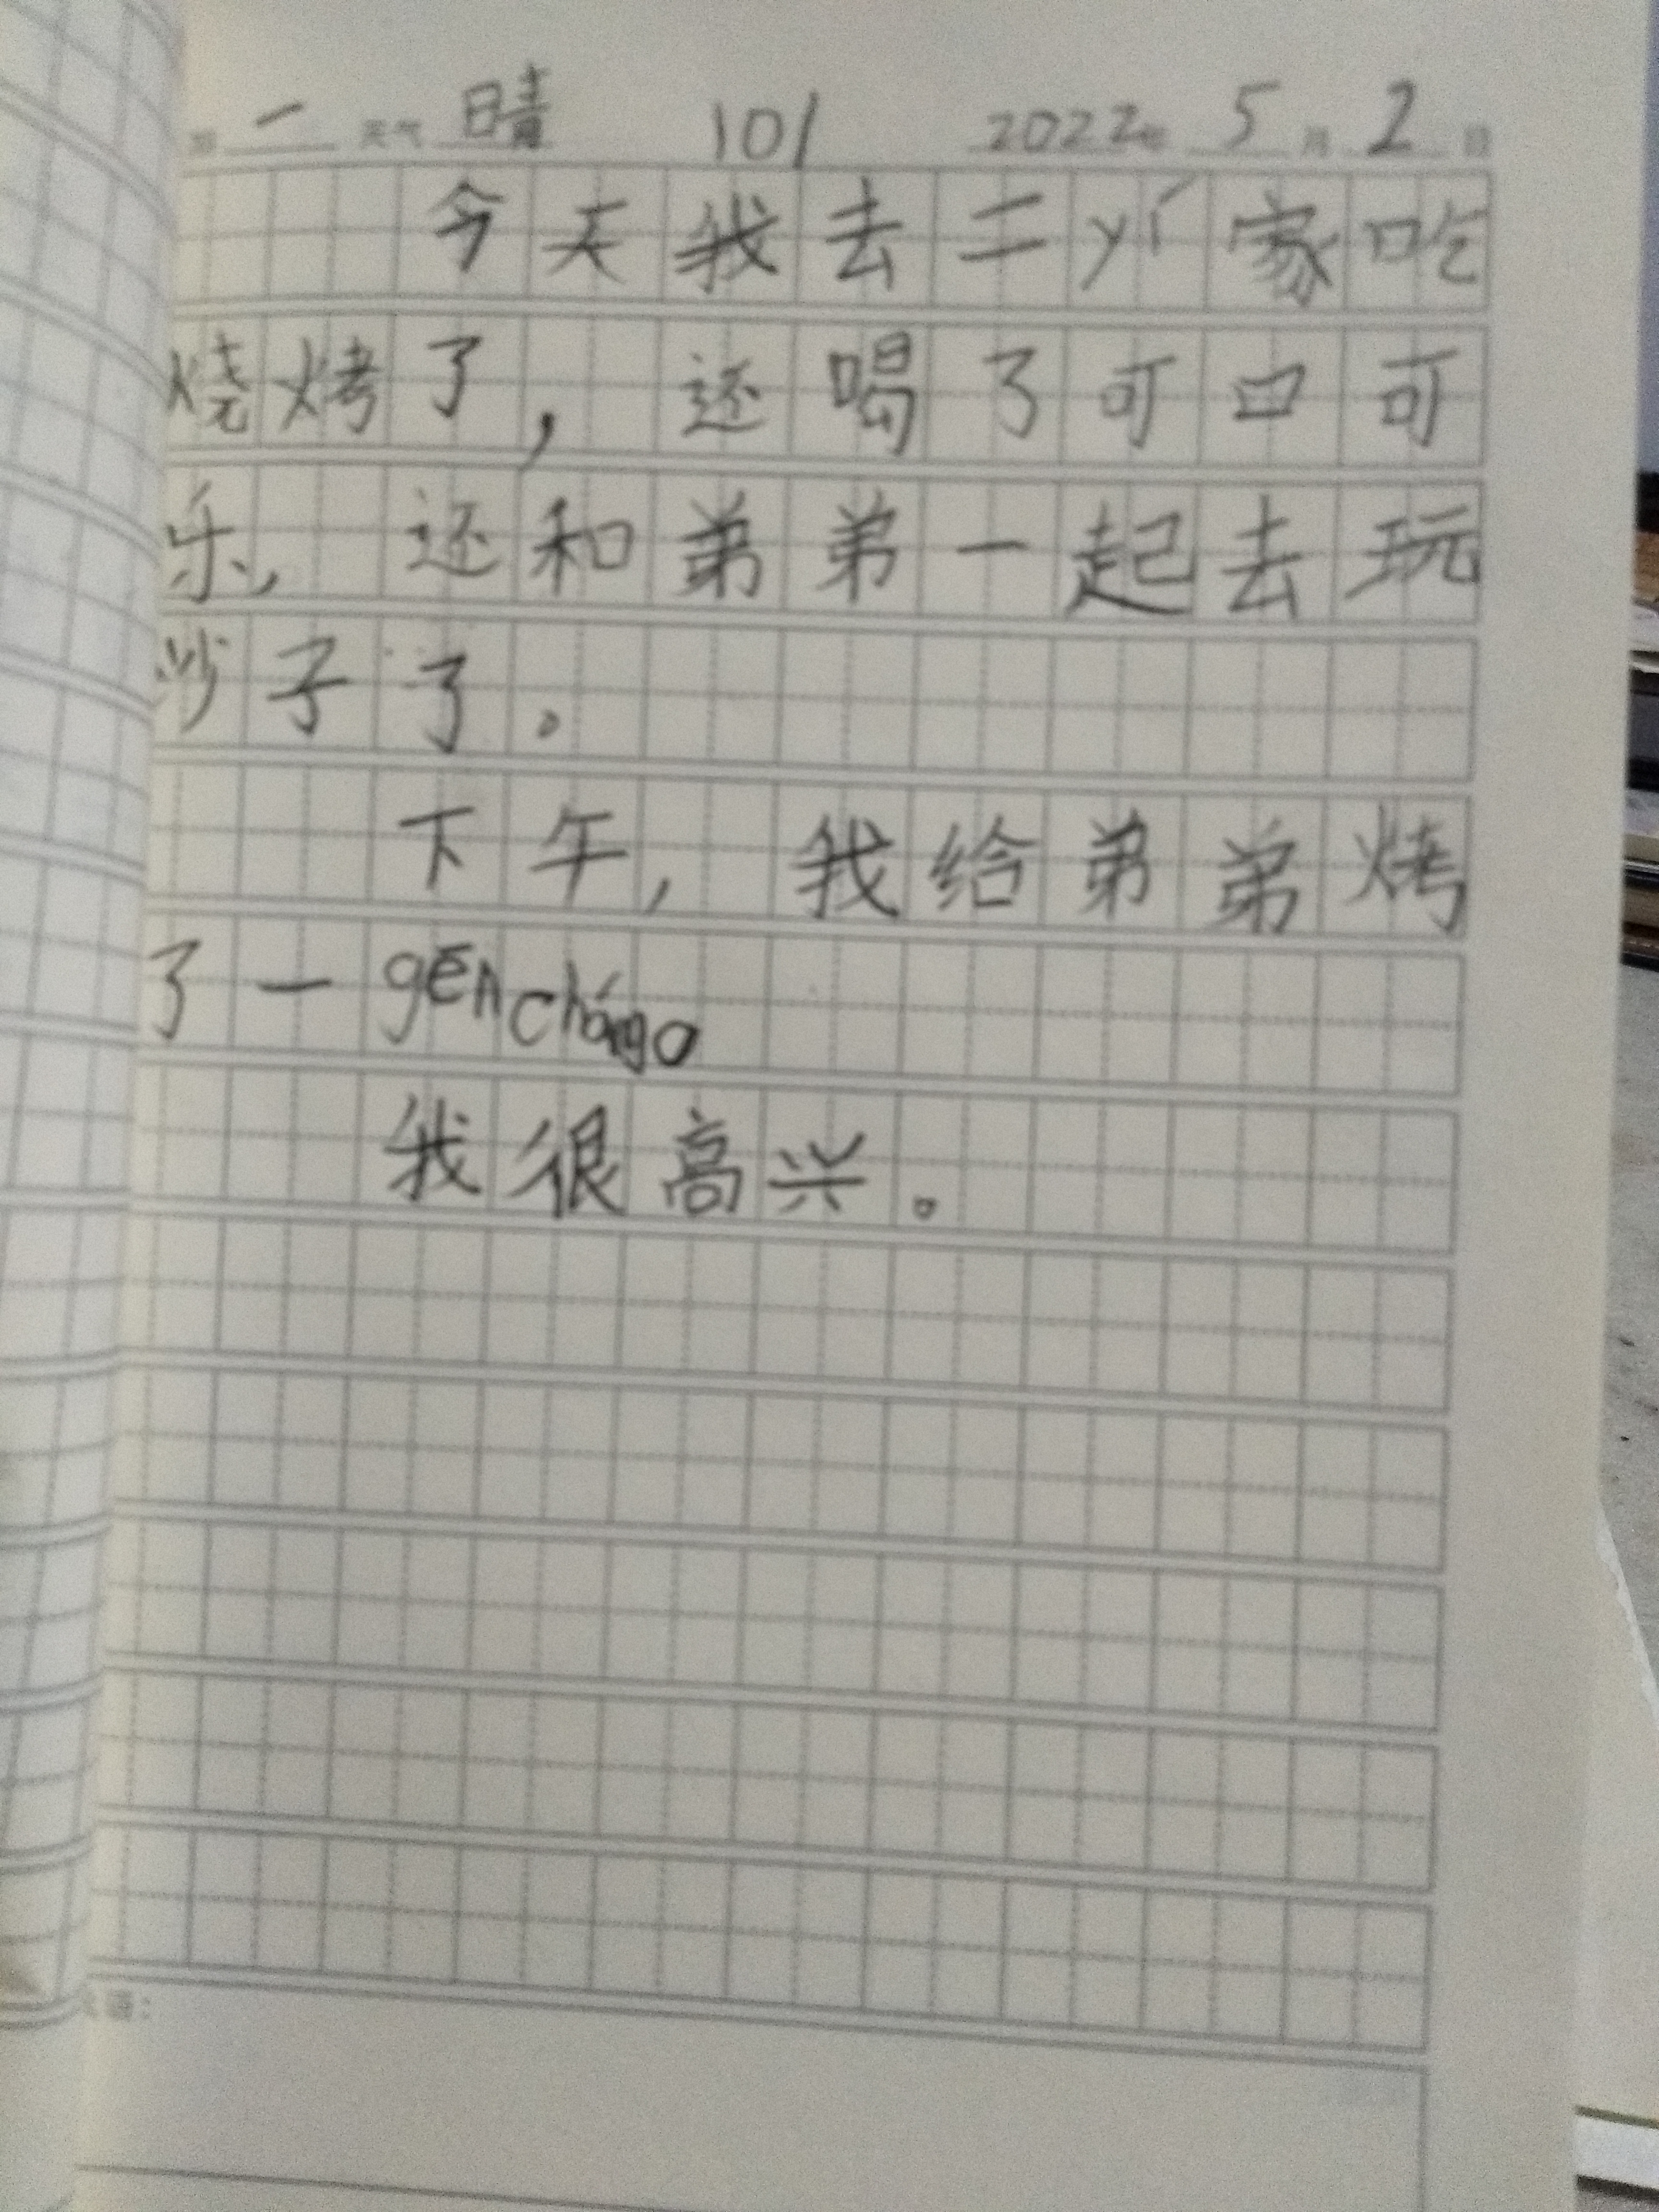 一 天气 晴 101 2022年 5月 2日
今天我去二yí家吃
烧烤了,还喝了可口可
乐,还和弟弟一起去玩
沙子了。
下午,我给弟弟烤
了一gēncháng。
我很高兴。